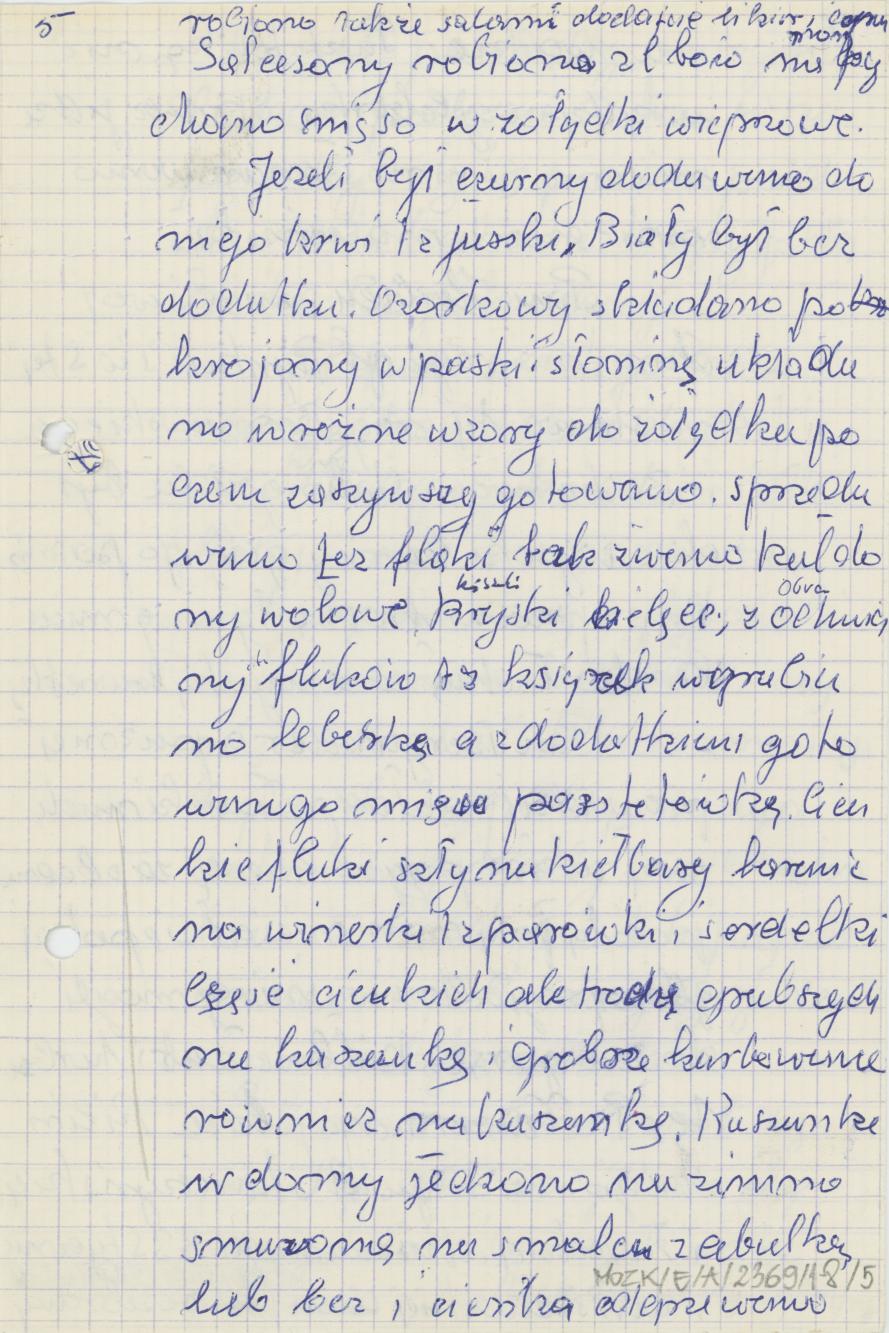 5 robiono także salami dodając likier i
Salcesony robiono z łbow na
chano mięso w żołądki wieprzowe.
Jeżeli był czarny dodawano do
niego krwi tz juszki. Biały był bez
dodatku. Ozorkowy składano po
krojony w paski i słoninę układa
no w rożne wzory do żołądka po
czem zaszywszy gotowano. sprzeda
wano też flaki tak zwano kałdo
ny wołowe, kiszki cielęce, z obra
ny flakow tz książek wyrabia
no leberkę a z dodatkiem goto
wanego mięsa pasztetówkę. Cien
kie flaki szły na kiełbasy baranie
na winerki tz parówki i serdelki
część cienkich ale trochę grubszych
na kaszankę i grubsze karbowane
również na kaszankę. Kaszankę
w domy jedzono na zimno
smażoną na smalcu z cebulką
lub bez, i ciasta odgrzewano
MOZK/E/A/2369/18/5